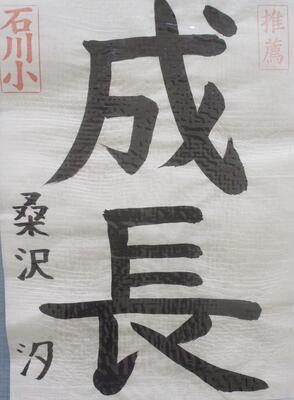 推薦
成長
石川小
桑沢 汐